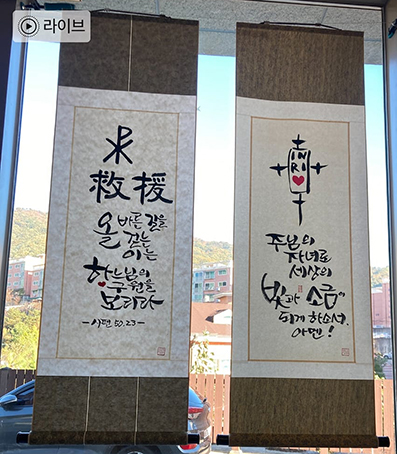 라이브
救援
올바른 길을
걷는
이는
하느님의
구원을
보리라
-시편 50,23-
INRI
주님의
자녀로
세상의
빛과 소금
되게 하소서.
아멘!